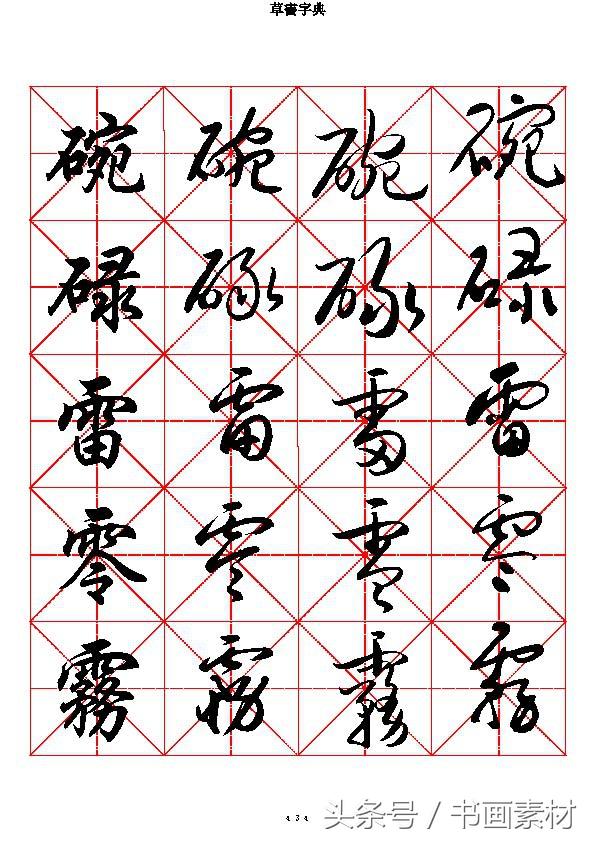 草書字典
碗 碗 碗 碗
碌 碌 碌 碌
雷 雷 雷 雷
零 零 零 零
霧 霧 霧 霧
434
头条号 / 书画素材